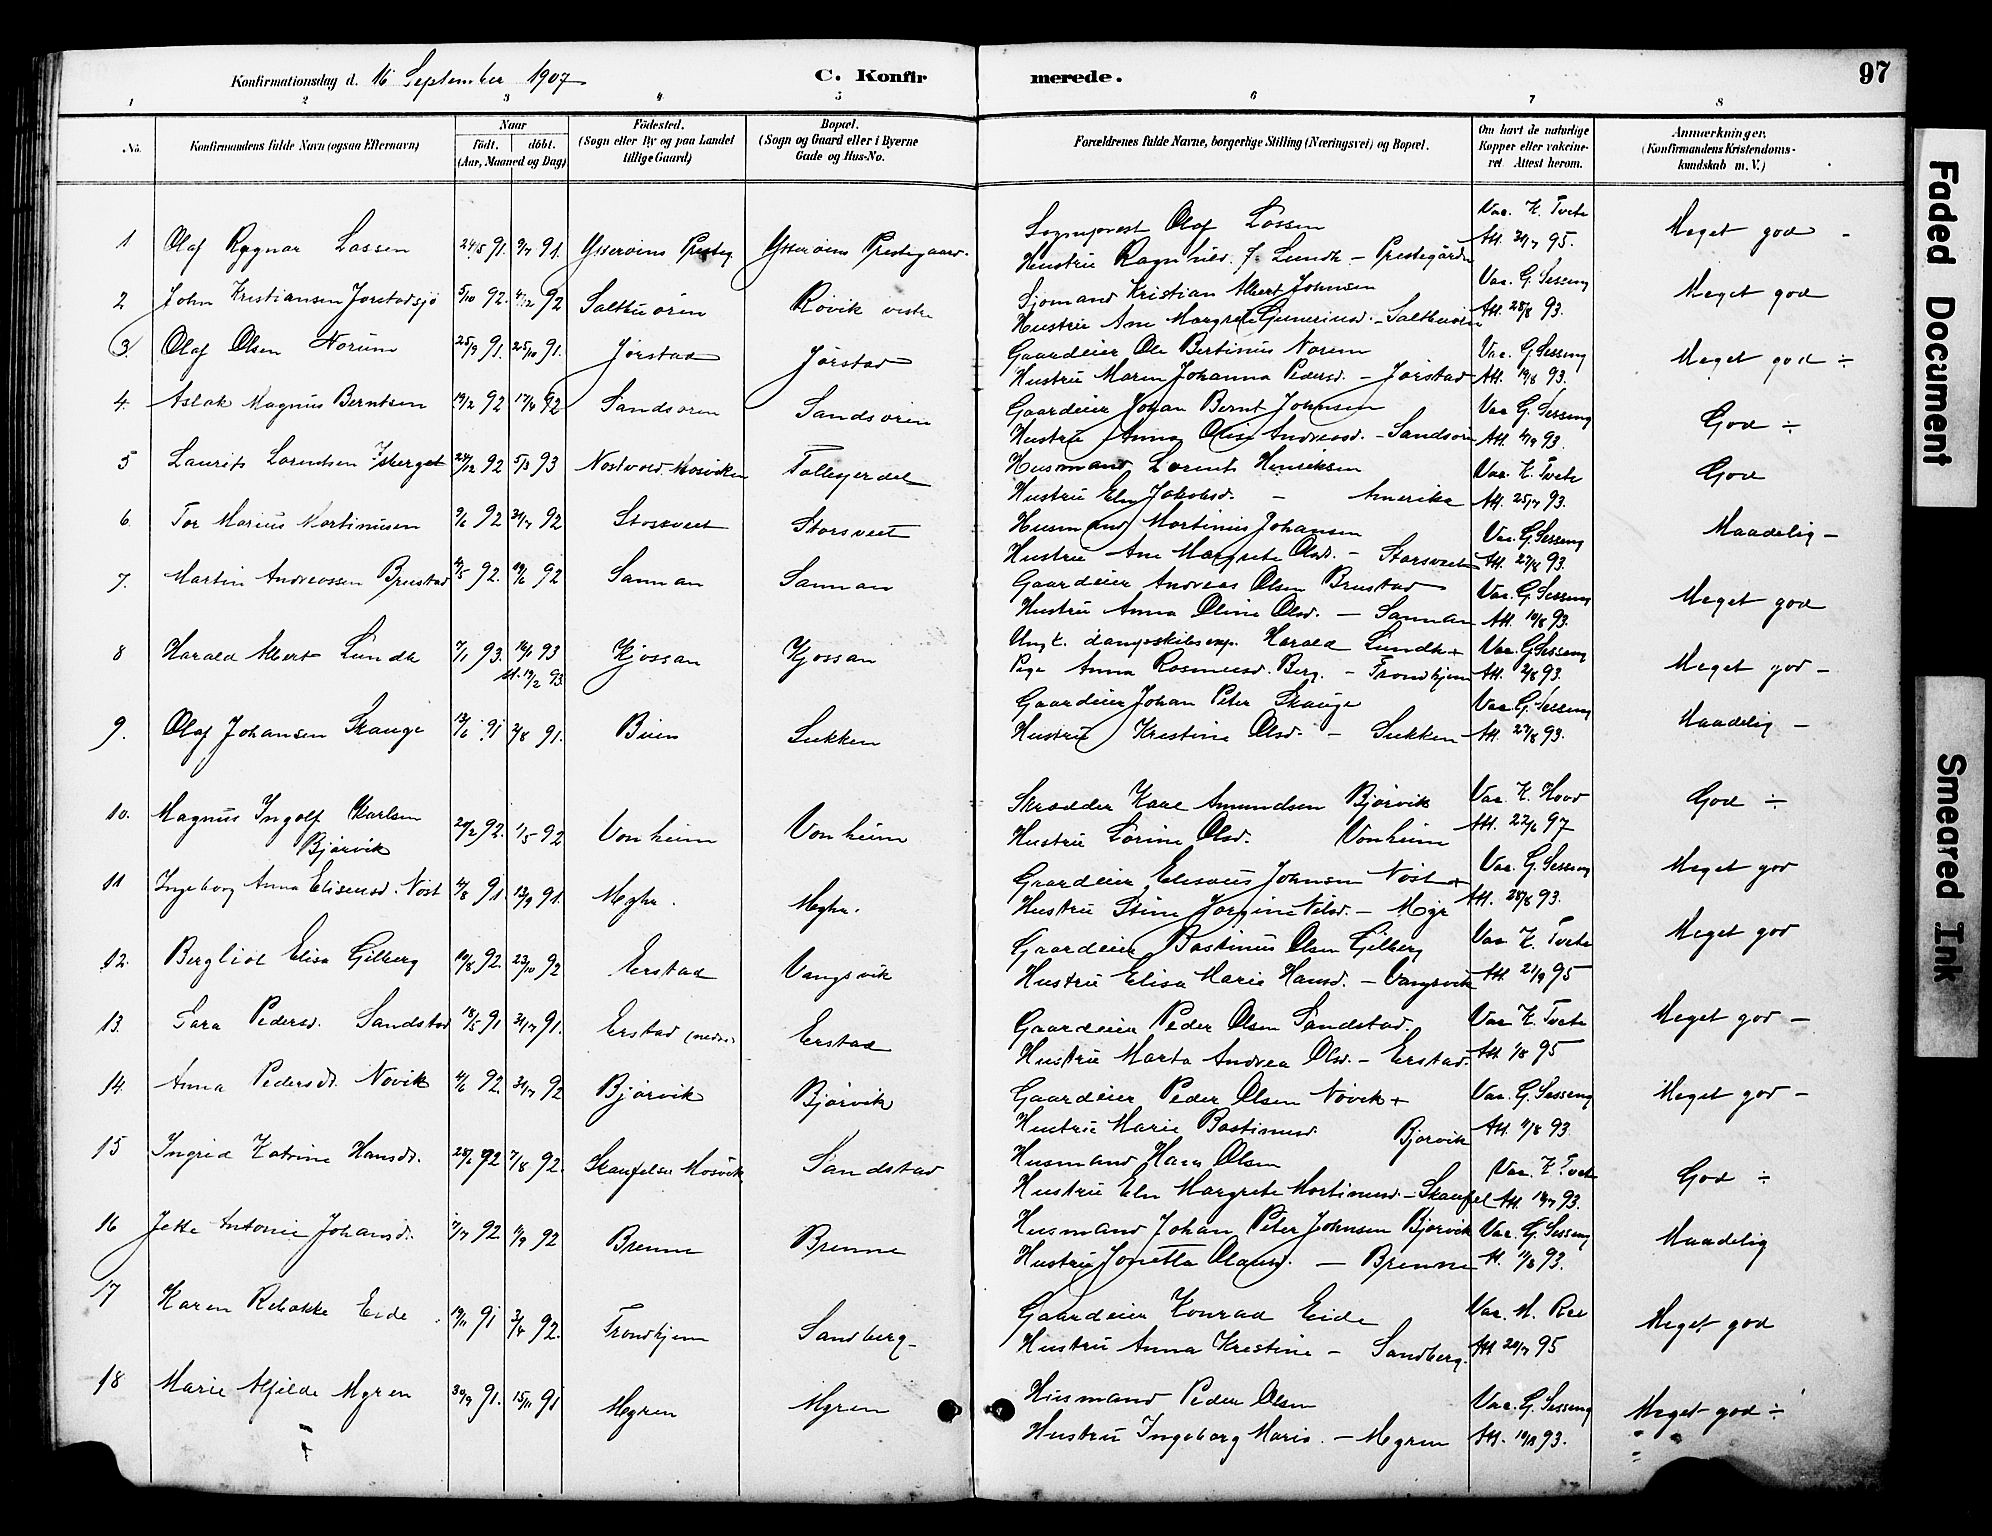 Konfirmationsdag d. 16 September 1907
C. Konfir merede.
97
1 2 3 4 5 6 7 8
No.
Konfirmandens fulde Navn (ogsaa Efternavn)
Naar
født. døbt.
(Aar, Maaned og Dag)
Fødested.
(Sogn eller By og paa Landet
tillige Gaard)
Bopæl.
(Sogn og Gaard eller i Byerne
Gade og Hus-No.
Forældrenes fulde Navne, borgerlige Stilling (Næringsvei) og Bopæl.
Om havt de naturlige
Kopper eller vakcine-
ret Attest herom.
Anmærkninger.
(Konfirmandens Kristendoms-
kundskab m. V.)
Sogneprest Olaf Lossen Vac. K. Tvete
1 Olaf Ragnar Lossen 24/5 91. 9/7 91. Ytterøens Presteg. Ytterøens Prestegaard. Meget god -
Hustru Ragnhild f. Lundh - Prestegården Att. 31/7 95.
Sjømand Kristian Albert Johnsen Vac. G. Sesseng
2 John Kristiansen Jørstadsjø 5/10 92. 4/12 92 Salthuøren Røvik vestre Meget god
Hustru Ane Margrete Gunneriusd. - Salthuøren Att. 28/8 93.
Gaardeier Ole Bertinus Norum Vac. G. Sesseng
3. Olaf Olsen Norum 25/9 91. 25/10 91. Jørstad Jørstad Meget god ÷
Hustru Maren Johanna Pedersd. - Jørstad Att. 19/8 93.
Gaardeier Johan Bernt Johnsen Vac G. Sesseng
4. Aslak Magnus Berntsen 19/2 92 17/4 92 Sandsøren Sandsøren God ÷
Hustru Anna Oline Andreasd. - Sandsøren Att. 4/9 93.
Husmand Lorents Henriksen Vac. K. Tvete
5 Laurits Lorentsen Ysterget 28/12 92 5/3 93 Nostvold Mosviken Follesjerdet God
Hustru Elen Jakobsd. - Amerika Att. 25/7 93.
Husmand Martinus Johansen Vac. G. Sesseng
6. Tor Marius Martinusen 9/6 92 31/7 92 Storsveet Storsveet Maadelig -
Hustru Ane Margrete Olsd. - Storsveet Att. 22/8 93.
Gaardeier Andreas Olsen Brustad Vac. G. Sesseng
7. Martin Andreassen Brustad 4/5 92. 19/6 92 Sannan Sannan Meget god
Hustru Anna Oline Olsd. - Sannan Att. 19/8 93.
Ungk. dampskibsexp. Harald Lundh + Vac. G. Sesseng
8 Harald Albert Lundh 7/1 93. 14/1 93 Kjossan Kjossan Meget god -
st. 19/2 93.
Pige Anna Rasmusd. Berg. - Trondhjem Att. 2/8 93.
Gaardeier Johan Peter Skauge Vac. G. Sesseng
9. Olaf Johansen Skauge 13/6 91 2/8 91. Buen Lukken Maadelig -
Hustru Kristine Olsd. - Lukken Att. 27/8 93.
Skrædder Karl Amundsen Bjørvik Vac. K. Hovd
10. Magnus Ingolf Karlsen 20/2 92. 1/5 92 Vonheim Vonheim God ÷
Bjørvik
Hustru Lorine Olsd. Vonheim Att. 22/6 97
Gaardeier Eliseus Johnsen Nøst + Vac. G. Sesseng
11 Ingeborg Anna Eliseusd. Nøst 4/8 91. 13/9 91. Myhr. Myhr. Meget god
Hustru Stine Jørgine Nilsd. - Myr Att. 28/8 93.
Gaardeier Bastinus Olsen Gilberg Vac K. Tvete
12. Bergliot Elisa Gilberg 19/8 92. 23/10 92 Erstad Vangsvik Meget god
Hustru Elisa Marie Hansd. - Vangsvik Att 21/9 95
Gaardeier Peder Olsen Sandstad. Vac K. Tvete
13. Sara Pedersd. Sandstad 18/5 91 31/7 91. Erstad (nedre) Erstad Meget god -
Hustru Marta Andrea Olsd. - Erstad. Att 1/8 95
Gaardeier Peder Olsen Nøvik + Vac. G. Sesseng
14 Anna Pedersdt. Nøvik 4/6 92. 31/7 92 Bjørvik Bjørvik Meget god -
Hustru Marie Bastinusd. Bjørvik Att. 11/8 93.
Husmand Hans Olsen Vac. K. Tvete
15 Ingrid Katrine Hansdt. 28/6 92 7/8 92. Skaufelen Mosvik Sandstad God ÷
Hustru Eln Margrete Martinusd. - Skaufel Att. 19/7 93.
Husmand Johan Peter Johnsen Bjørvik Vac. G. Sesseng
16 Jette Antonie Johansd. 7/7 92. 11/9 92 Brenne Brenne Maadelig
Hustru Jonetta Olausd. - Brenne At. 11/8 93.
Gaardeier Konrad Eide Vac. M. Ree
17 Karen Rebakke Eide 19/11 91 3/4 92. Trondhjem Sandberg Meget god
Hustru Anna Kristine - Sandberg. Att. 20/7 95
Husmand Peder Olsen Vac. G. Sesseng
18 Marie Alfilde Myren 30/9 91. 15/11 91 Myren Myren Meget god ÷
Hustru Ingeborg Marie. - Myren Att. 19/8 93.
Faded Document
Smeared Ink